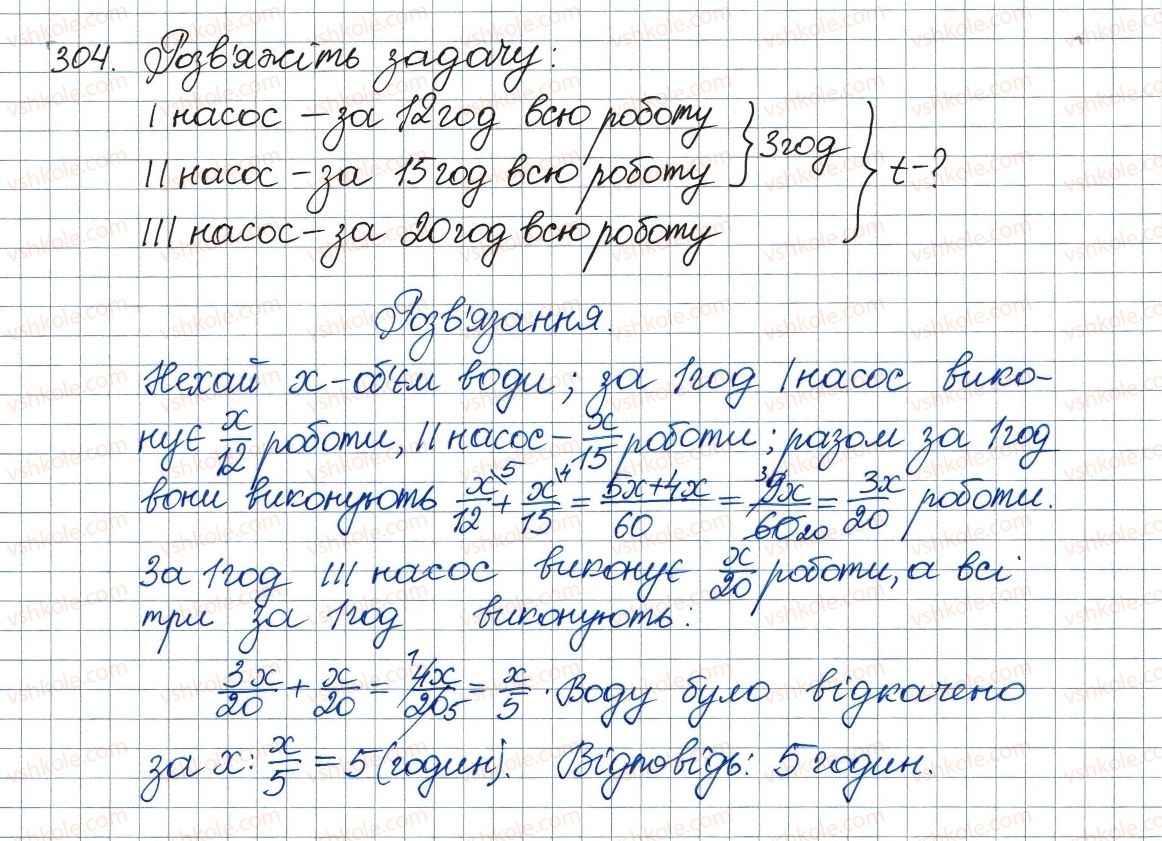 304. Розв'яжіть задачу:
I насос – за 12 год всю роботу } 3 год } t – ?
II насос – за 15 год всю роботу
III насос – за 20 год всю роботу
Розв'язання.
Нехай x – об'єм води; за 1 год I насос вико-
нує x/12 роботи, II насос – x/15 роботи; разом за 1 год
вони виконують x\5/12 + x\4/15 = 5x+4x/60 = 3 9x/60 20 = 3x/20 роботи.
За 1 год III насос виконує x/20 роботи, а всі
три за 1 год виконують:
3x/20 + x/20 = 1 4x/20 5 = x/5. Воду було відкачено
за x : x/5 = 5 (годин). Відповідь: 5 годин.
vshkole.com